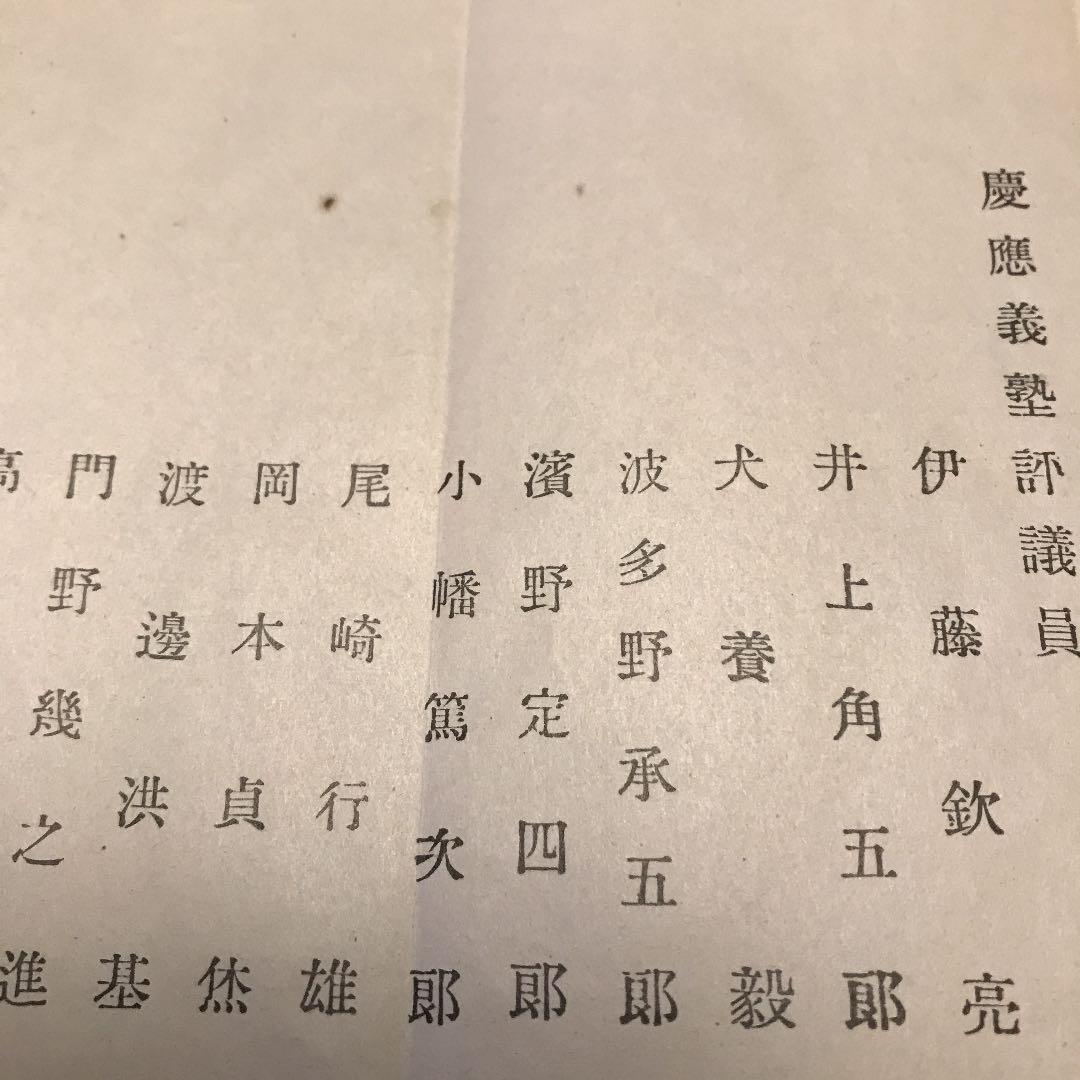 慶應義塾評議員
伊藤欽亮
井上角五郎
犬養毅
波多野承五郎
濱野定四郎
小幡篤次郎
尾崎行雄
岡本貞烋
渡邊洪基
門野幾之進
高